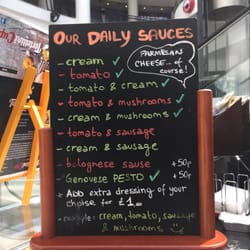 OUR DAILY SAUCES
PARMESAN
CHEESE... of
course!
- cream ✓
- tomato ✓
- tomato & cream ✓
- tomato & mushrooms ✓
- cream & mushrooms ✓
- tomato & sausage
- cream & sausage
- bolognese sause + 50p
- Genovese PESTO ✓ + 50p
* Add extra dressing of your
choise for £1
example: cream, tomato, sausage
& mushrooms